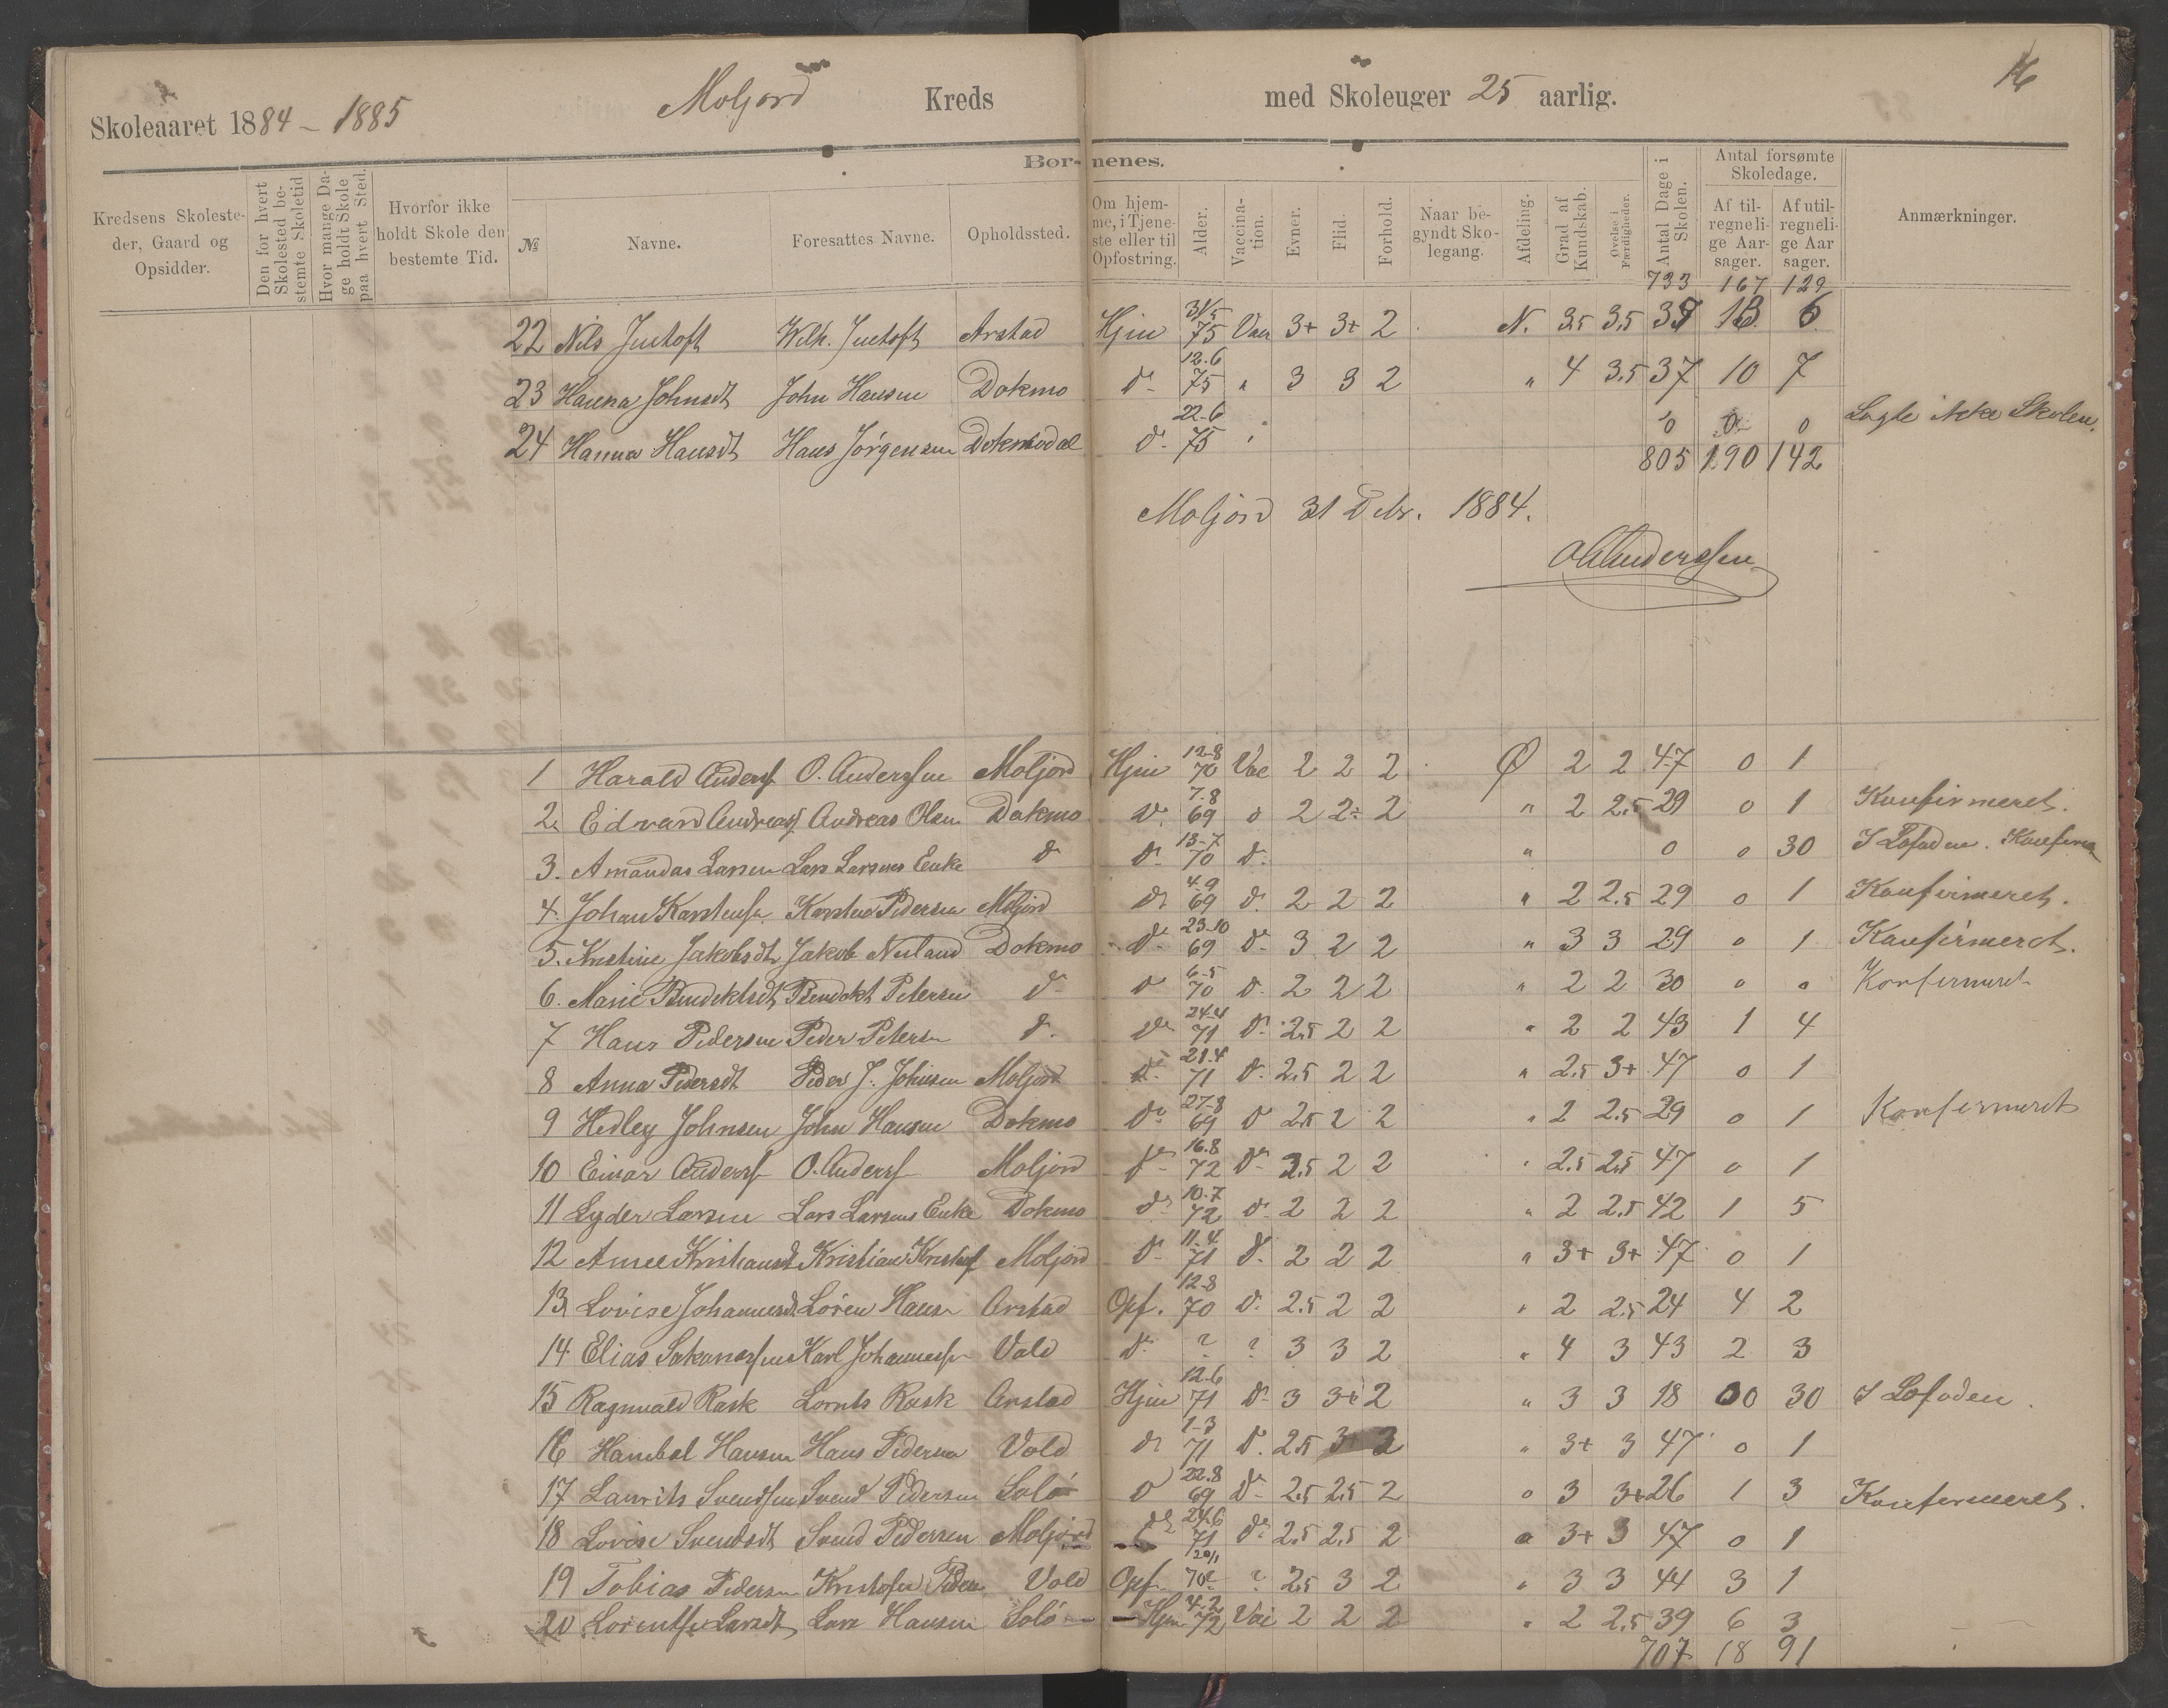 16
Skoleaaret 1884 - 1885 Moljord Kreds med Skoleuger 25 aarlig.
Børnenes.
Kredsens Skolesteder, Gaard og Opsidder. Den for hvert Skolested bestemte Skoletid Hvor mange Dage holdt Skole paa hvert Sted. Hvorfor ikke holdt Skole den bestemte Tid. № Navne. Foresattes Navne. Opholdssted. Om hjemme, i Tjeneste eller til Opfostring. Alder. Vaccination. Evner. Flid. Forhold. Naar begyndt Skolegang. Afdeling. Grad af Kundskab. Øvelse i Færdigheder. Antal Dage i Skolen. Antal forsømte Skoledage. Af tilregnelige Aarsager. Af utilregnelige Aarsager. Anmærkninger.
733 167 129
22 Nils Arstad Hjm 31/5 75 Vac 3+ 3+ 2 N. 3.5 3.5 13 6
23 Hanna Johnsdt John Hansen Dokmo d- 12.6 75 " 3 3 2 " 4 3.5 37 10 7
24 Hanna Hansdt Hans Jørgensen Dokmodal d- 22-6 75 " 0 0 0 Søgte ikke Skolen.
805 190 142
Moljord 31 Debr. 1884.
OAAnderssen
1 Harald Anderss O. Anderssen Moljord Hjm 12-8 70 Vac 2 2 2 Ø 2 2 47 0 1
2 Edvard Andreass Andreas Olsen Dokmo d. 7.8 69 d 2 2 2 " 2 2.5 29 0 1 Konfirmeret.
3. Amandas Larsen Lars Larsens Enke d d- 13-7 70 d. " 0 0 30 I Lofoden.
4. Johan Karstens Karsten Pedersen Moljord d- 4.9 69 d. 2 2 2 " 2 2.5 29 0 1 Konfirmeret.
5. Kristine Jakobsdt Jakob Dokmo d- 23-10 69 d- 3 2 2 " 3 3 29 0 1 Konfirmeret.
6. Marie Bendiktsdt Bendikt Petersen d- d 6-5 70 d. 2 2 2 " 2 2 30 0 0 Konfirmeret
7 Hans Pedersen Peder Petersen d. d- 24-4 71 d- 2.5 2 2 " 2 2 43 1 4
8 Anna Pedersdt Peder J. Johnsen Moljord d- 21.4 71 d. 2.5 2 2 " 2.5 3+ 47 0 1
9 Hedley Johnsen John Hansen Dokmo d- 27-8 69 d 2.5 2 2 " 2 2.5 29 0 1 Konfirmeret
10 Einar Anderss O. Anderss Moljord d- 16.8 72 d- 2.5 2 2 " 2.5 2.5 47 0 1
11 Lyder Larsen Lars Larsens Enke Dokmo d- 10.7 72 d- 2 2 2 " 2 2.5 42 1 5
12 Kristiansdt Kristian Moljord d- 11.4. 71 d. 2 2 2 " 3+ 3+ 47 0 1
13 Lovise Johannesdt Søren Hansen Arstad Opf. 12-8 70 d. 2.5 2 2 " 2 2.5 24 4 2
14 Elias Karl Johannessen Vold d- ? ? 3 3 2 " 4 3 43 2 3
15 Ragnvald Rask Lornts Rask Arstad Hjm 12-6 71 d- 3 3+ 2 " 3 3 18 00 30 I Lofoden.
16 Hanibal Hansen Hans Pedersen Vold d- 1-3 71 d. 2.5 3+ 2 " 3+ 3 47 0 1
17 Laurits Svendsen Svend Pedersen Solø d 22.8 69 d- 2.5 2.5 2 " 3 3+ 26 1 3 Konfirmeret.
18 Lovise Svendsdt Svend Pedersen Moljord d- 24.6 71 d- 2.5 2.5 2 " 3+ 3 47 0 1
19 Tobias Pedersen Kristofer Peders Vold Opf 20/1 70? ? 2.5 3 2 " 3 3 44 3 1
20 Lorentse Larsdt Lars Hansen Solø Hjm 4.2 72 Vac 2 2 2 " 2 2.5 39 6 3
707 18 91